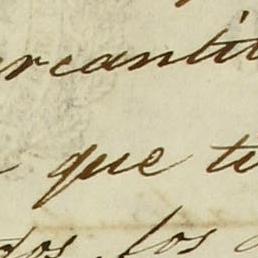 ercantil
que tu
dos los